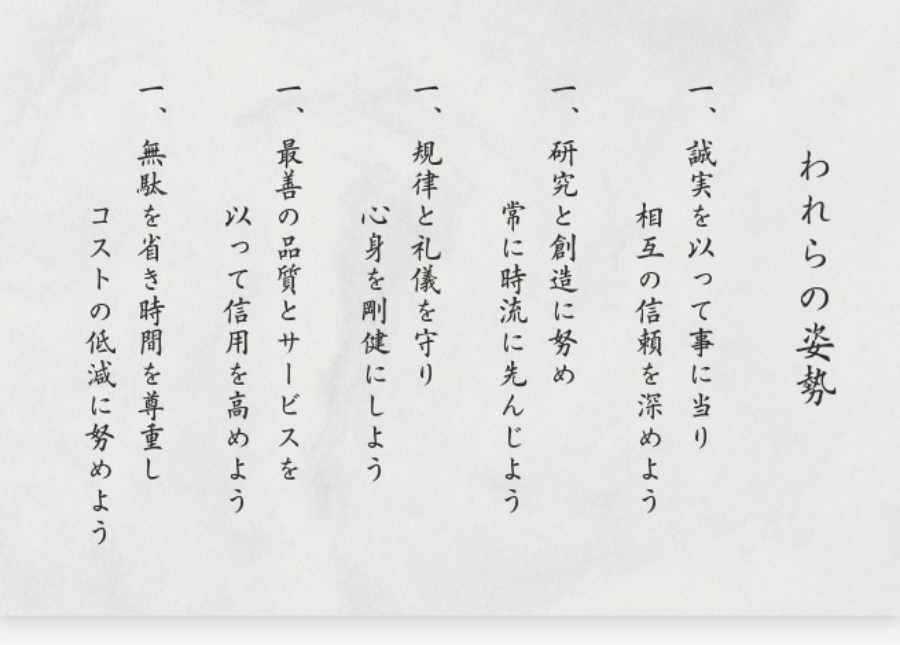 われらの姿勢
一、誠実を以って事に当り
相互の信頼を深めよう
一、研究と創造に努め
常に時流に先んじよう
一、規律と礼儀を守り
心身を剛健にしよう
一、最善の品質とサービスを
以って信用を高めよう
一、無駄を省き時間を尊重し
コストの低減に努めよう